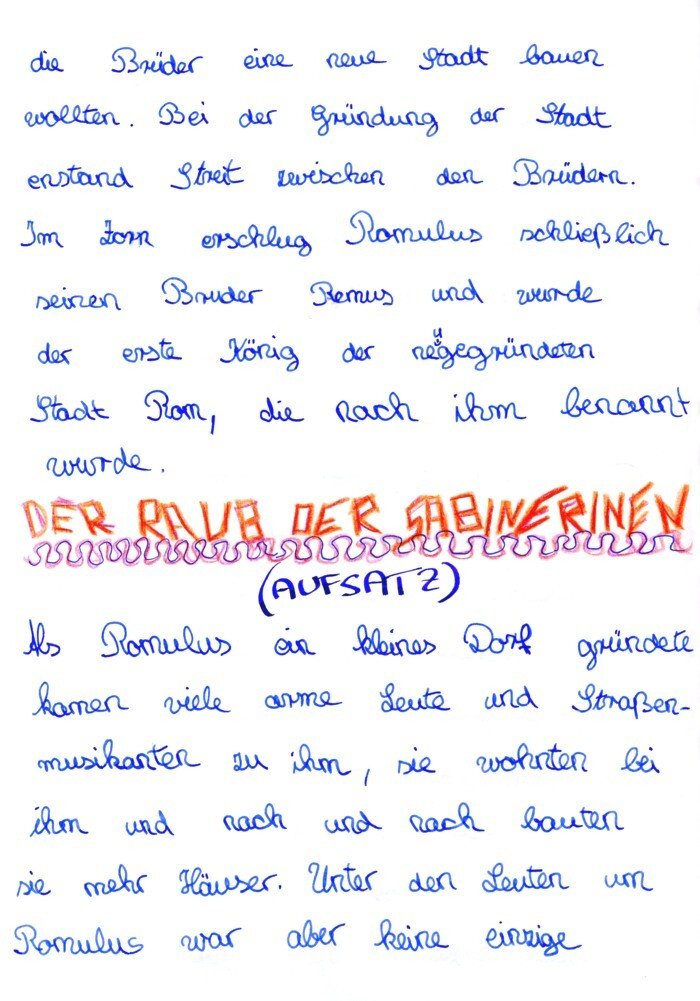 die Brüder eine neue Stadt bauen
wollten. Bei der Gründung der Stadt
enstand Streit zwischen den Brüdern.
Im Zorn erschlug Romulus schließlich
seinen Bruder Remus und wurde
der erste König der neugegründeten
Stadt Rom, die nach ihm benannt
wurde.
DER RAUB DER SABINERINEN
(AUFSATZ)
Als Romulus ein kleines Dorf gründete
kamen viele arme Leute und Straßen-
musikanten zu ihm, sie wohnten bei
ihm und nach und nach bauten
sie mehr Häuser. Unter den Leuten um
Romulus war aber keine einzige